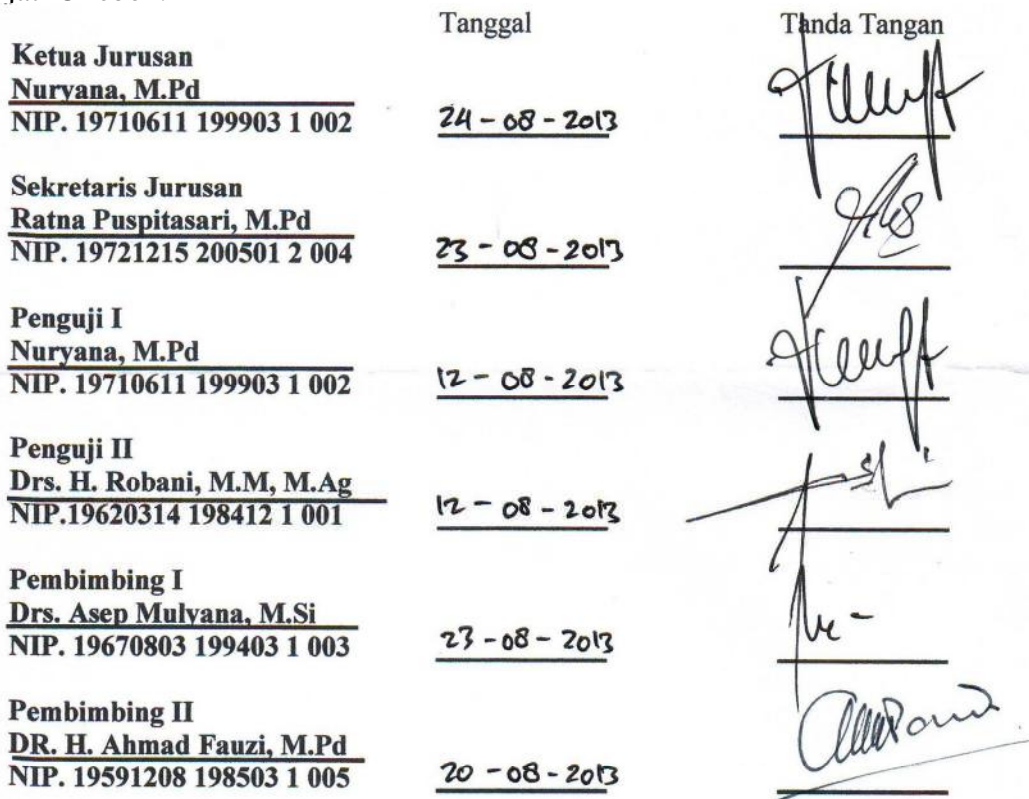 Tanggal Tanda Tangan
Ketua Jurusan
Nuryana, M.Pd
NIP. 19710611 199903 1 002 24-08-2013
Sekretaris Jurusan
Ratna Puspitasari, M.Pd
NIP. 19721215 200501 2 004 23-08-2013
Penguji I
Nuryana, M.Pd
NIP. 19710611 199903 1 002 12-08-2013
Penguji II
Drs. H. Robani, M.M, M.Ag
NIP.19620314 198412 1 001 12-08-2013
Pembimbing I
Drs. Asep Mulyana, M.Si
NIP. 19670803 199403 1 003 23-08-2013
Pembimbing II
DR. H. Ahmad Fauzi, M.Pd
NIP. 19591208 198503 1 005 20-08-2013